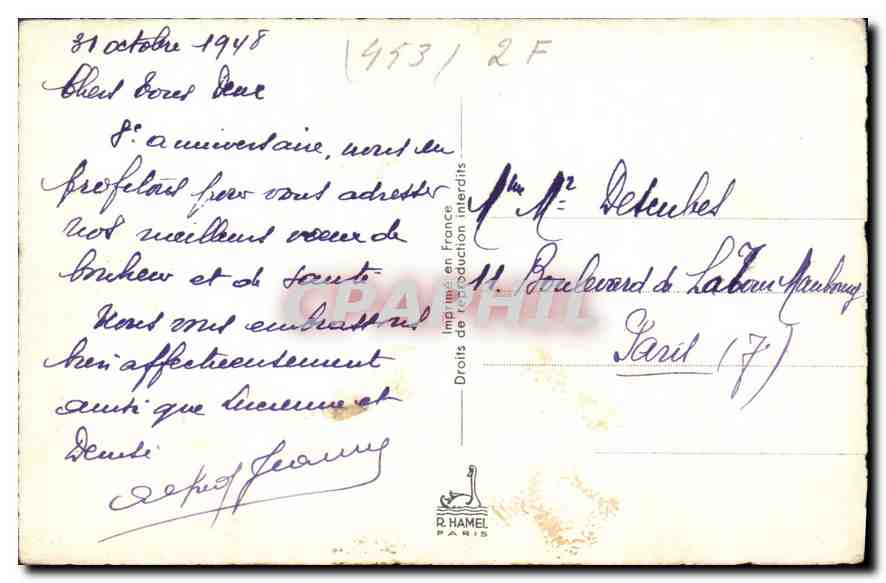 31 octobre 1948
(453) 2 F
Chers Tous Deux
8e anniversaire, nous en
profitons pour vous adresser
nos meilleurs vœux de
bonheur et de santé
Nous vous embrassons
bien affectueusement
ainsi que Lucienne et
Denise
Alfred Jeanne
Imprimé en France
Droits de reproduction interdits
CPAPHIL
R. HAMEL
PARIS
Descubes
11. Boulevard de LaTour Maubourg
Paris (7e)